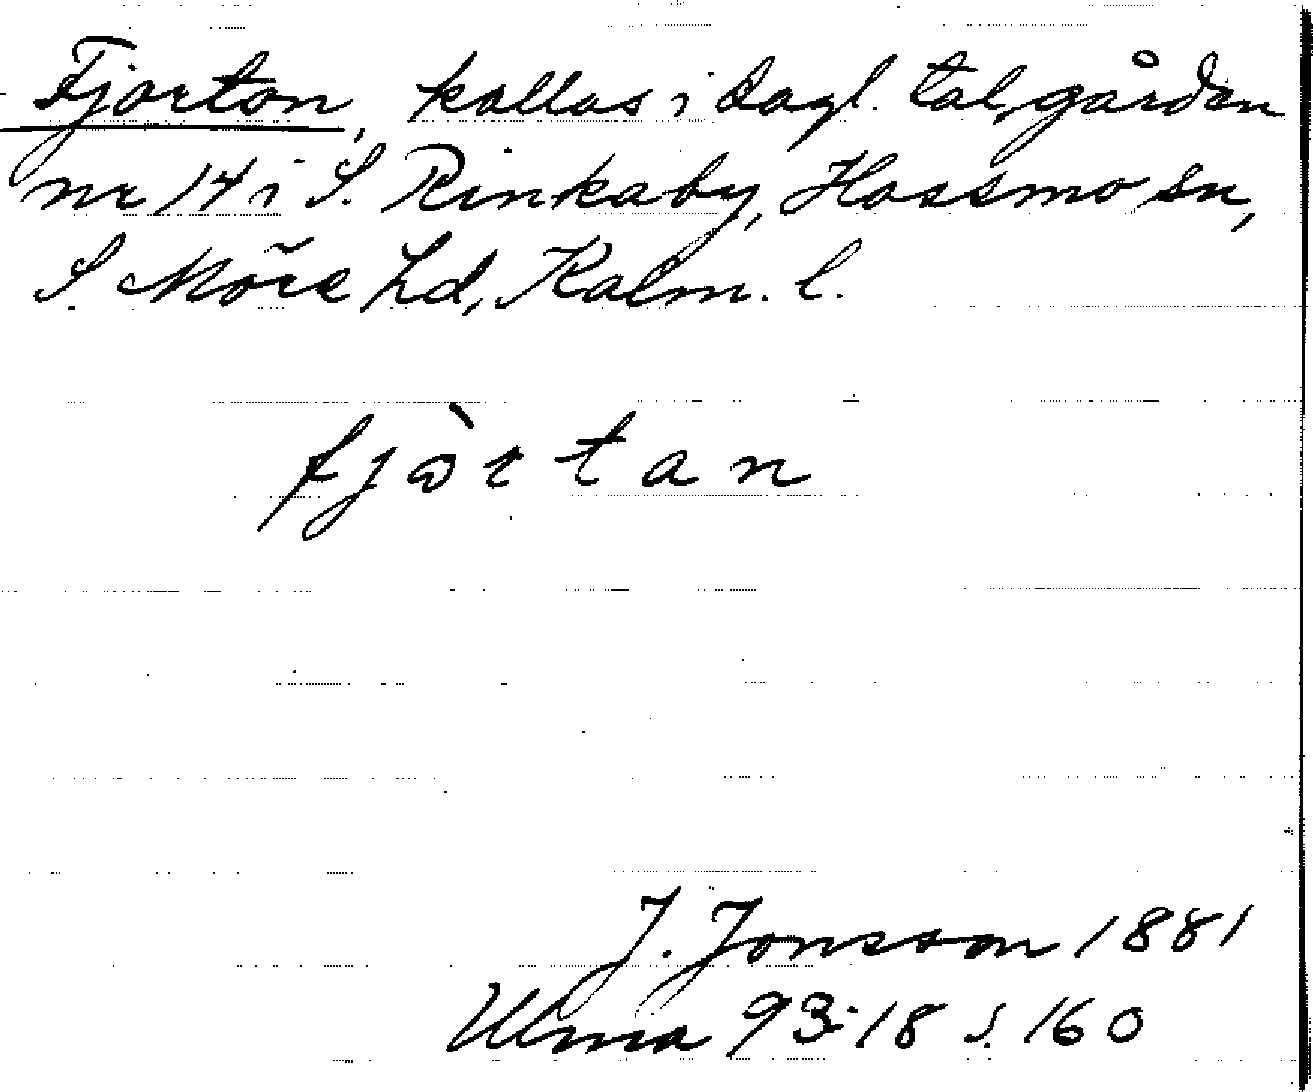 Fjorton, kallas i dagl. tal gården
nr 14 i S. Rinkaby, Hossmo sn,
S. Möre hd, Kalm. l.
fjòrtan
J. Jonsson 1881
Ulma 93:18 s. 160